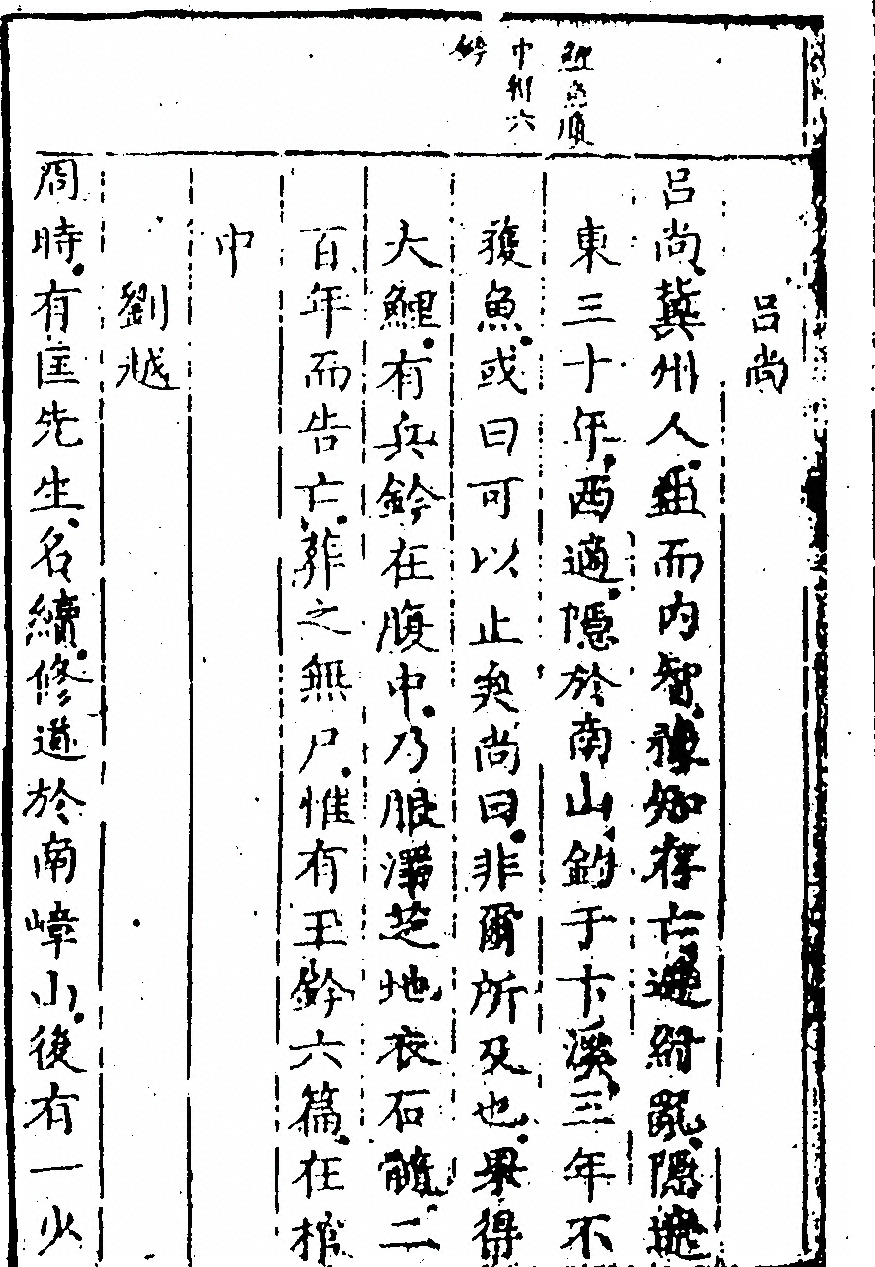 鯉魚腹
中鈐六
鈐
呂尚
呂尚冀州人生而內智預知存亡避紂亂隱遼
東三十年西適隱於南山釣于卞溪三年不
獲魚或曰可以止矣尚曰非爾所及也果得
大鯉有兵鈐在腹中乃服澤芝地衣石髓二
百年而告亡葬之無尸惟有玉鈐六篇在棺
中
劉越
周時有匡先生名續修道於南嶂山後有一少